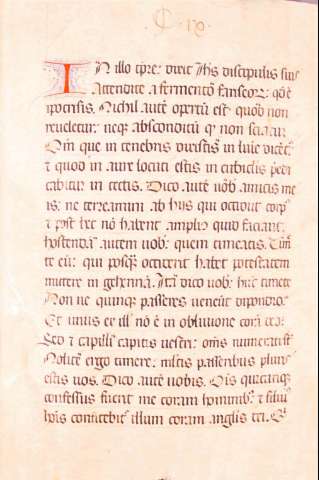 IN illo tpre: dixit Ihs discipulis suis
Attendite a fermento fariseor: qđ ē
ipocrisis. Nichil autē opertū est quod non
reveletur: neq; absconditū qđ non sciatur
Qm que in tenebris dixistis in luce dicēt:
et quod in aure locuti estis in cubiclis pdi
cabitur in tectis. Dico autē vob: amicis me
is: ne terreamini ab hiis qui occidūt corp
et post hec nō habent amplius quid faciant:
hostendā autem vob: quem timeatis. Tim
te eū: qui posq; occiderit habet potestatem
mittere in gehennā. Itā dico vob: hūc timete
Nonne quinq; passeres veneūt dipondio:
Et unus ex ill nō ē in oblivione corā deo:
Sed et capilli capitis vestri: oms numerati st
Nolite ergo timere: multis passeribus pluris
estis vos. Dico autē vobis. Ois quicūq;
confessus fuerit me coram hominib: et filius
hois confitebit illum coram anglis dei.